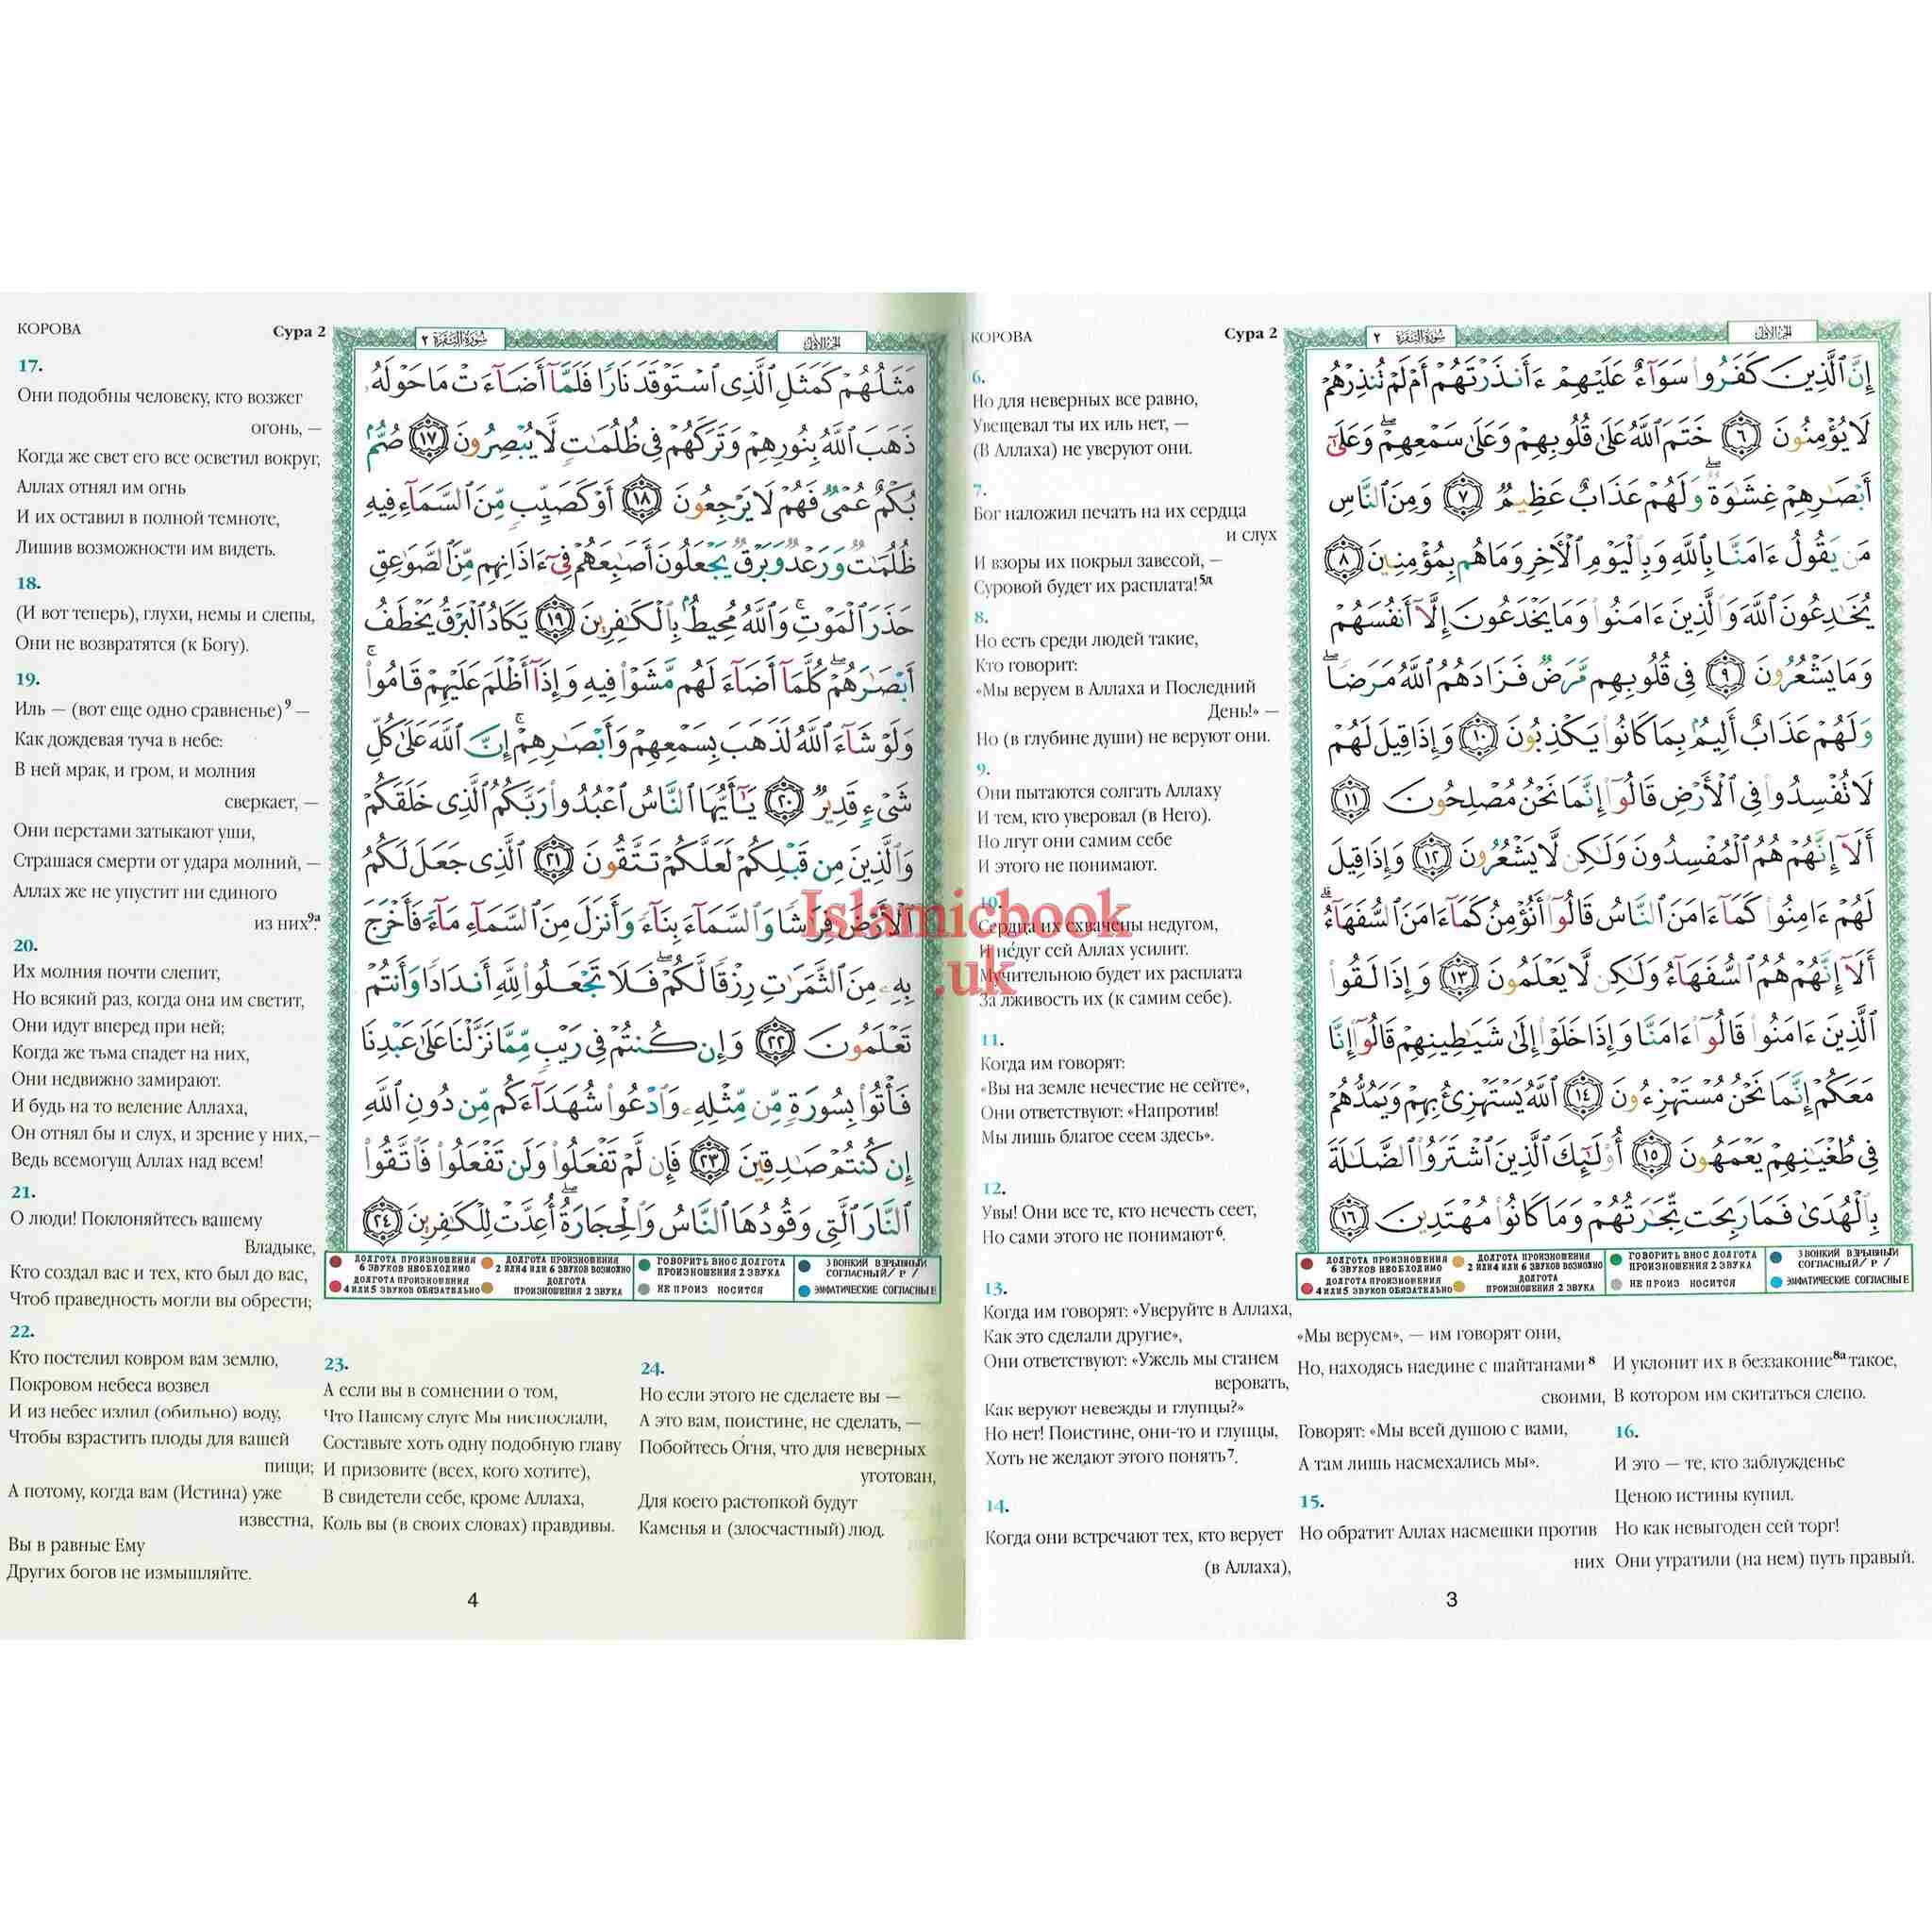 КОРОВА
Сура 2
6.
Но для неверных все равно,
Увещевал ты их иль нет, —
(В Аллаха) не уверуют они.
7.
Бог наложил печать на их сердца
и слух
И взоры их покрыл завесой, —
Суровой будет их расплата!5д
8.
Но есть среди людей такие,
Кто говорит:
«Мы веруем в Аллаха и Последний
День!» —
Но (в глубине души) не веруют они.
9.
Они пытаются солгать Аллаху
И тем, кто уверовал (в Него).
Но лгут они самим себе
И этого не понимают.
10.
Сердца их охвачены недугом,
И не́дуг сей Аллах усилит.
Мучительною будет их расплата
За лживость их (к самим себе).
11.
Когда им говорят:
«Вы на земле нечестие не сейте»,
Они ответствуют: «Напротив!
Мы лишь благое сеем здесь».
12.
Увы! Они все те, кто нечесть сеет,
Но сами этого не понимают6.
13.
Когда им говорят: «Уверуйте в Аллаха,
Как это сделали другие»,
Они ответствуют: «Ужель мы станем
веровать,
Как веруют невежды и глупцы?»
Но нет! Поистине, они-то и глупцы,
Хоть не желают этого понять7.
14.
Когда они встречают тех, кто верует
(в Аллаха),
«Мы веруем», — им говорят они,
Но, находясь наедине с шайтанами8
своими,
Говорят: «Мы всей душою с вами,
А там лишь насмехались мы».
15.
Но обратит Аллах насмешки против
них
И уклонит их в беззаконие8а такое,
В котором им скитаться слепо.
16.
И это — те, кто заблужденье
Ценою истины купил.
Но как невыгоден сей торг!
Они утратили (на нем) путь правый.
سُورَةُ البَقَرَة ٢
الجزء الأول
إِنَّ ٱلَّذِينَ كَفَرُوا۟ سَوَآءٌ عَلَيْهِمْ ءَأَنذَرْتَهُمْ أَمْ لَمْ تُنذِرْهُمْ
لَا يُؤْمِنُونَ ٦ خَتَمَ ٱللَّهُ عَلَىٰ قُلُوبِهِمْ وَعَلَىٰ سَمْعِهِمْ ۖ وَعَلَىٰٓ
أَبْصَٰرِهِمْ غِشَٰوَةٌ ۖ وَلَهُمْ عَذَابٌ عَظِيمٌ ٧ وَمِنَ ٱلنَّاسِ
مَن يَقُولُ ءَامَنَّا بِٱللَّهِ وَبِٱلْيَوْمِ ٱلْأَخِرِ وَمَا هُم بِمُؤْمِنِينَ ٨
يُخَٰدِعُونَ ٱللَّهَ وَٱلَّذِينَ ءَامَنُوا۟ وَمَا يَخْدَعُونَ إِلَّآ أَنفُسَهُمْ
وَمَا يَشْعُرُونَ ٩ فِى قُلُوبِهِم مَّرَضٌ فَزَادَهُمُ ٱللَّهُ مَرَضًا ۖ
وَلَهُمْ عَذَابٌ أَلِيمٌۢ بِمَا كَانُوا۟ يَكْذِبُونَ ١٠ وَإِذَا قِيلَ لَهُمْ
لَا تُفْسِدُوا۟ فِى ٱلْأَرْضِ قَالُوٓا۟ إِنَّمَا نَحْنُ مُصْلِحُونَ ١١
أَلَآ إِنَّهُمْ هُمُ ٱلْمُفْسِدُونَ وَلَٰكِن لَّا يَشْعُرُونَ ١٢ وَإِذَا قِيلَ
لَهُمْ ءَامِنُوا۟ كَمَآ ءَامَنَ ٱلنَّاسُ قَالُوٓا۟ أَنُؤْمِنُ كَمَآ ءَامَنَ ٱلسُّفَهَآءُ ۗ
أَلَآ إِنَّهُمْ هُمُ ٱلسُّفَهَآءُ وَلَٰكِن لَّا يَعْلَمُونَ ١٣ وَإِذَا لَقُوا۟
ٱلَّذِينَ ءَامَنُوا۟ قَالُوٓا۟ ءَامَنَّا وَإِذَا خَلَوْا۟ إِلَىٰ شَيَٰطِينِهِمْ قَالُوٓا۟ إِنَّا
مَعَكُمْ إِنَّمَا نَحْنُ مُسْتَهْزِءُونَ ١٤ ٱللَّهُ يَسْتَهْزِئُ بِهِمْ وَيَمُدُّهُمْ
فِى طُغْيَٰنِهِمْ يَعْمَهُونَ ١٥ أُو۟لَٰٓئِكَ ٱلَّذِينَ ٱشْتَرَوُا۟ ٱلضَّلَٰلَةَ
بِٱلْهُدَىٰ فَمَا رَبِحَت تِّجَٰرَتُهُمْ وَمَا كَانُوا۟ مُهْتَدِينَ ١٦
ДОЛГОТА ПРОИЗНОШЕНИЯ 6 ЗВУКОВ НЕОБХОДИМО
ДОЛГОТА ПРОИЗНОШЕНИЯ 2 ИЛИ 4 ИЛИ 6 ЗВУКОВ ВОЗМОЖНО
ГОВОРИТЬ В НОС ДОЛГОТА ПРОИЗНОШЕНИЯ 2 ЗВУКА
ЗВОНКИЙ ВЗРЫВНЫЙ СОГЛАСНЫЙ/ Р /
ДОЛГОТА ПРОИЗНОШЕНИЯ 4 ИЛИ 5 ЗВУКОВ ОБЯЗАТЕЛЬНО
ДОЛГОТА ПРОИЗНОШЕНИЯ 2 ЗВУКА
НЕ ПРОИЗ НОСИТСЯ
ЭМФАТИЧЕСКИЕ СОГЛАСНЫЕ
3
КОРОВА
Сура 2
17.
Они подобны человеку, кто возжег
огонь, —
Когда же свет его все осветил вокруг,
Аллах отнял им огнь
И их оставил в полной темноте,
Лишив возможности им видеть.
18.
(И вот теперь), глухи, немы и слепы,
Они не возвратятся (к Богу).
19.
Иль — (вот еще одно сравненье)9 —
Как дождевая туча в небе:
В ней мрак, и гром, и молния
сверкает, —
Они перстами затыкают уши,
Страшася смерти от удара молний, —
Аллах же не упустит ни единого
из них9а.
20.
Их молния почти слепит,
Но всякий раз, когда она им светит,
Они идут вперед при ней;
Когда же тьма спадет на них,
Они недвижно замирают.
И будь на то веление Аллаха,
Он отнял бы и слух, и зрение у них,—
Ведь всемогущ Аллах над всем!
21.
О люди! Поклоняйтесь вашему
Владыке,
Кто создал вас и тех, кто был до вас,
Чтоб праведность могли вы обрести;
22.
Кто постелил ковром вам землю,
Покровом небеса возвел
И из небес излил (обильно) воду,
Чтобы взрастить плоды для вашей
пищи;
А потому, когда вам (Истина) уже
известна,
Вы в равные Ему
Других богов не измышляйте.
23.
А если вы в сомнении о том,
Что Нашему слуге Мы ниспослали,
Составьте хоть одну подобную главу
И призовите (всех, кого хотите),
В свидетели себе, кроме Аллаха,
Коль вы (в своих словах) правдивы.
24.
Но если этого не сделаете вы —
А это вам, поистине, не сделать, —
Побойтесь О́гня, что для неверных
уготован,
Для коего растопкой будут
Каменья и (злосчастный) люд.
سُورَةُ البَقَرَة ٢
الجزء الأول
مَثَلُهُمْ كَمَثَلِ ٱلَّذِى ٱسْتَوْقَدَ نَارًا فَلَمَّآ أَضَآءَتْ مَا حَوْلَهُۥ
ذَهَبَ ٱللَّهُ بِنُورِهِمْ وَتَرَكَهُمْ فِى ظُلُمَٰتٍ لَّا يُبْصِرُونَ ١٧ صُمٌّۢ
بُكْمٌ عُمْىٌ فَهُمْ لَا يَرْجِعُونَ ١٨ أَوْ كَصَيِّبٍ مِّنَ ٱلسَّمَآءِ فِيهِ
ظُلُمَٰتٌ وَرَعْدٌ وَبَرْقٌ يَجْعَلُونَ أَصَٰبِعَهُمْ فِىٓ ءَاذَانِهِم مِّنَ ٱلصَّوَٰعِقِ
حَذَرَ ٱلْمَوْتِ ۚ وَٱللَّهُ مُحِيطٌۢ بِٱلْكَٰفِرِينَ ١٩ يَكَادُ ٱلْبَرْقُ يَخْطَفُ
أَبْصَٰرَهُمْ ۖ كُلَّمَآ أَضَآءَ لَهُم مَّشَوْا۟ فِيهِ وَإِذَآ أَظْلَمَ عَلَيْهِمْ قَامُوا۟ ۚ
وَلَوْ شَآءَ ٱللَّهُ لَذَهَبَ بِسَمْعِهِمْ وَأَبْصَٰرِهِمْ ۚ إِنَّ ٱللَّهَ عَلَىٰ كُلِّ
شَىْءٍ قَدِيرٌ ٢٠ يَٰٓأَيُّهَا ٱلنَّاسُ ٱعْبُدُوا۟ رَبَّكُمُ ٱلَّذِى خَلَقَكُمْ
وَٱلَّذِينَ مِن قَبْلِكُمْ لَعَلَّكُمْ تَتَّقُونَ ٢١ ٱلَّذِى جَعَلَ لَكُمُ
ٱلْأَرْضَ فِرَٰشًا وَٱلسَّمَآءَ بِنَآءً وَأَنزَلَ مِنَ ٱلسَّمَآءِ مَآءً فَأَخْرَجَ
بِهِۦ مِنَ ٱلثَّمَرَٰتِ رِزْقًا لَّكُمْ ۖ فَلَا تَجْعَلُوا۟ لِلَّهِ أَندَادًا وَأَنتُمْ
تَعْلَمُونَ ٢٢ وَإِن كُنتُمْ فِى رَيْبٍ مِّمَّا نَزَّلْنَا عَلَىٰ عَبْدِنَا
فَأْتُوا۟ بِسُورَةٍ مِّن مِّثْلِهِۦ وَٱدْعُوا۟ شُهَدَآءَكُم مِّن دُونِ ٱللَّهِ
إِن كُنتُمْ صَٰدِقِينَ ٢٣ فَإِن لَّمْ تَفْعَلُوا۟ وَلَن تَفْعَلُوا۟ فَٱتَّقُوا۟
ٱلنَّارَ ٱلَّتِى وَقُودُهَا ٱلنَّاسُ وَٱلْحِجَارَةُ ۖ أُعِدَّتْ لِلْكَٰفِرِينَ ٢٤
ДОЛГОТА ПРОИЗНОШЕНИЯ 6 ЗВУКОВ НЕОБХОДИМО
ДОЛГОТА ПРОИЗНОШЕНИЯ 2 ИЛИ 4 ИЛИ 6 ЗВУКОВ ВОЗМОЖНО
ГОВОРИТЬ В НОС ДОЛГОТА ПРОИЗНОШЕНИЯ 2 ЗВУКА
ЗВОНКИЙ ВЗРЫВНЫЙ СОГЛАСНЫЙ/ Р /
ДОЛГОТА ПРОИЗНОШЕНИЯ 4 ИЛИ 5 ЗВУКОВ ОБЯЗАТЕЛЬНО
ДОЛГОТА ПРОИЗНОШЕНИЯ 2 ЗВУКА
НЕ ПРОИЗ НОСИТСЯ
ЭМФАТИЧЕСКИЕ СОГЛАСНЫЕ
4
Islamicbook
.uk